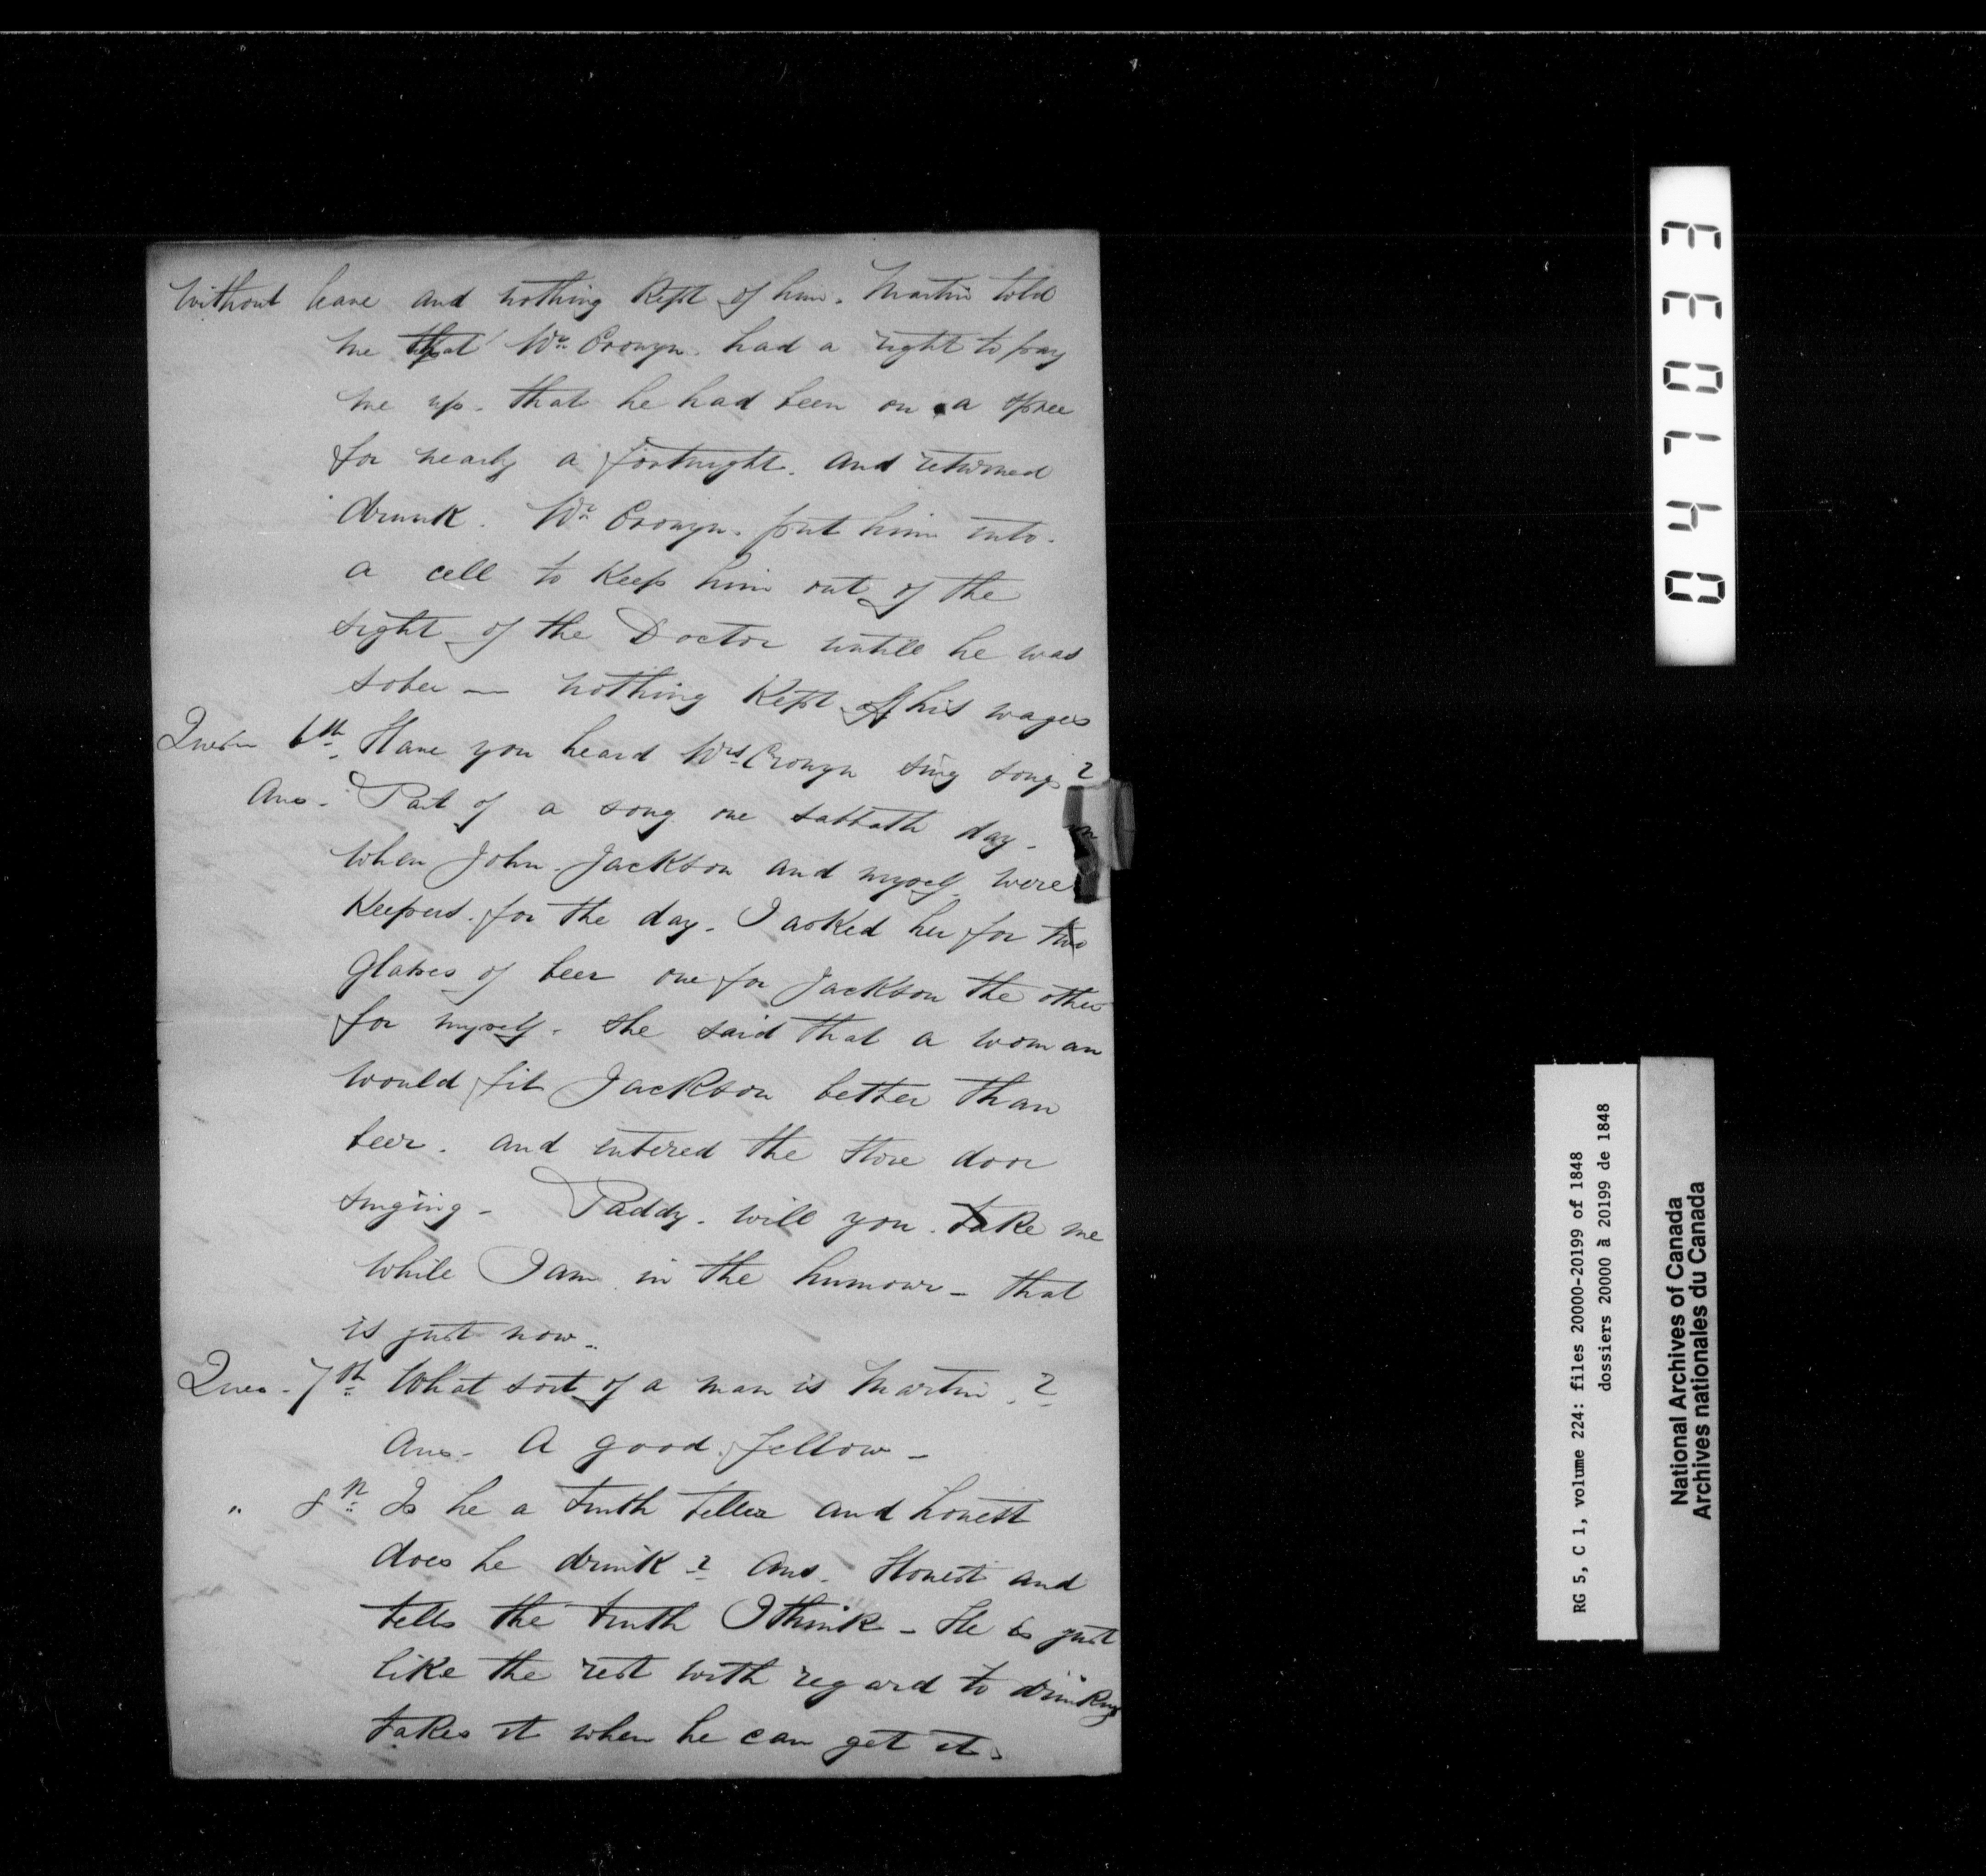 Without leave and nothing Kept of him. Martin told
me that Mr. Cronyn. had a right to pay
me up. that he had been on a spree
for nearly a fortnight. and returned
drunk. Mr. Cronyn. put him into.
a cell to Keep him out of the
sight of the Doctor untill he was
sober — nothing Kept of his wages
Questn 6th. Have you heard Mrs. Cronyn sing songs?
Ans. Part of a song one sabbath day –
When John. Jackson and myself. were
Keepers. for the day. I asked her for two
Glasses of beer one for Jackson the other
for myself. she said that a woman
would fit Jackson better than
beer. and entered the store door
singing – Paddy. will you. take me
while I am in the humour – that
is just now –
Ques – 7th. What sort of a man is Martin. ?
Ans – A good fellow –
" 8th. Is he a truth teller and honest
does he drink? Ans. Honest and
tells the truth I think – He is just
like the rest with regard to drinking
takes it when he can get it.
047033
RG 5, C 1, volume 224: files 20000-20199 of 1848
dossiers 20000 à 20199 de 1848
National Archives of Canada
Archives nationales du Canada